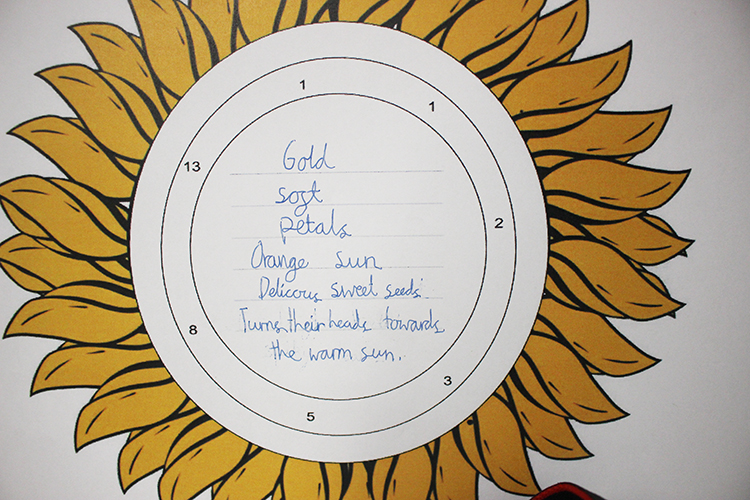 1
1
13
Gold
soft
petals
2
Orange sun
Delicous sweet seeds.
Turns their heads towards
the warm sun.
8
3
5